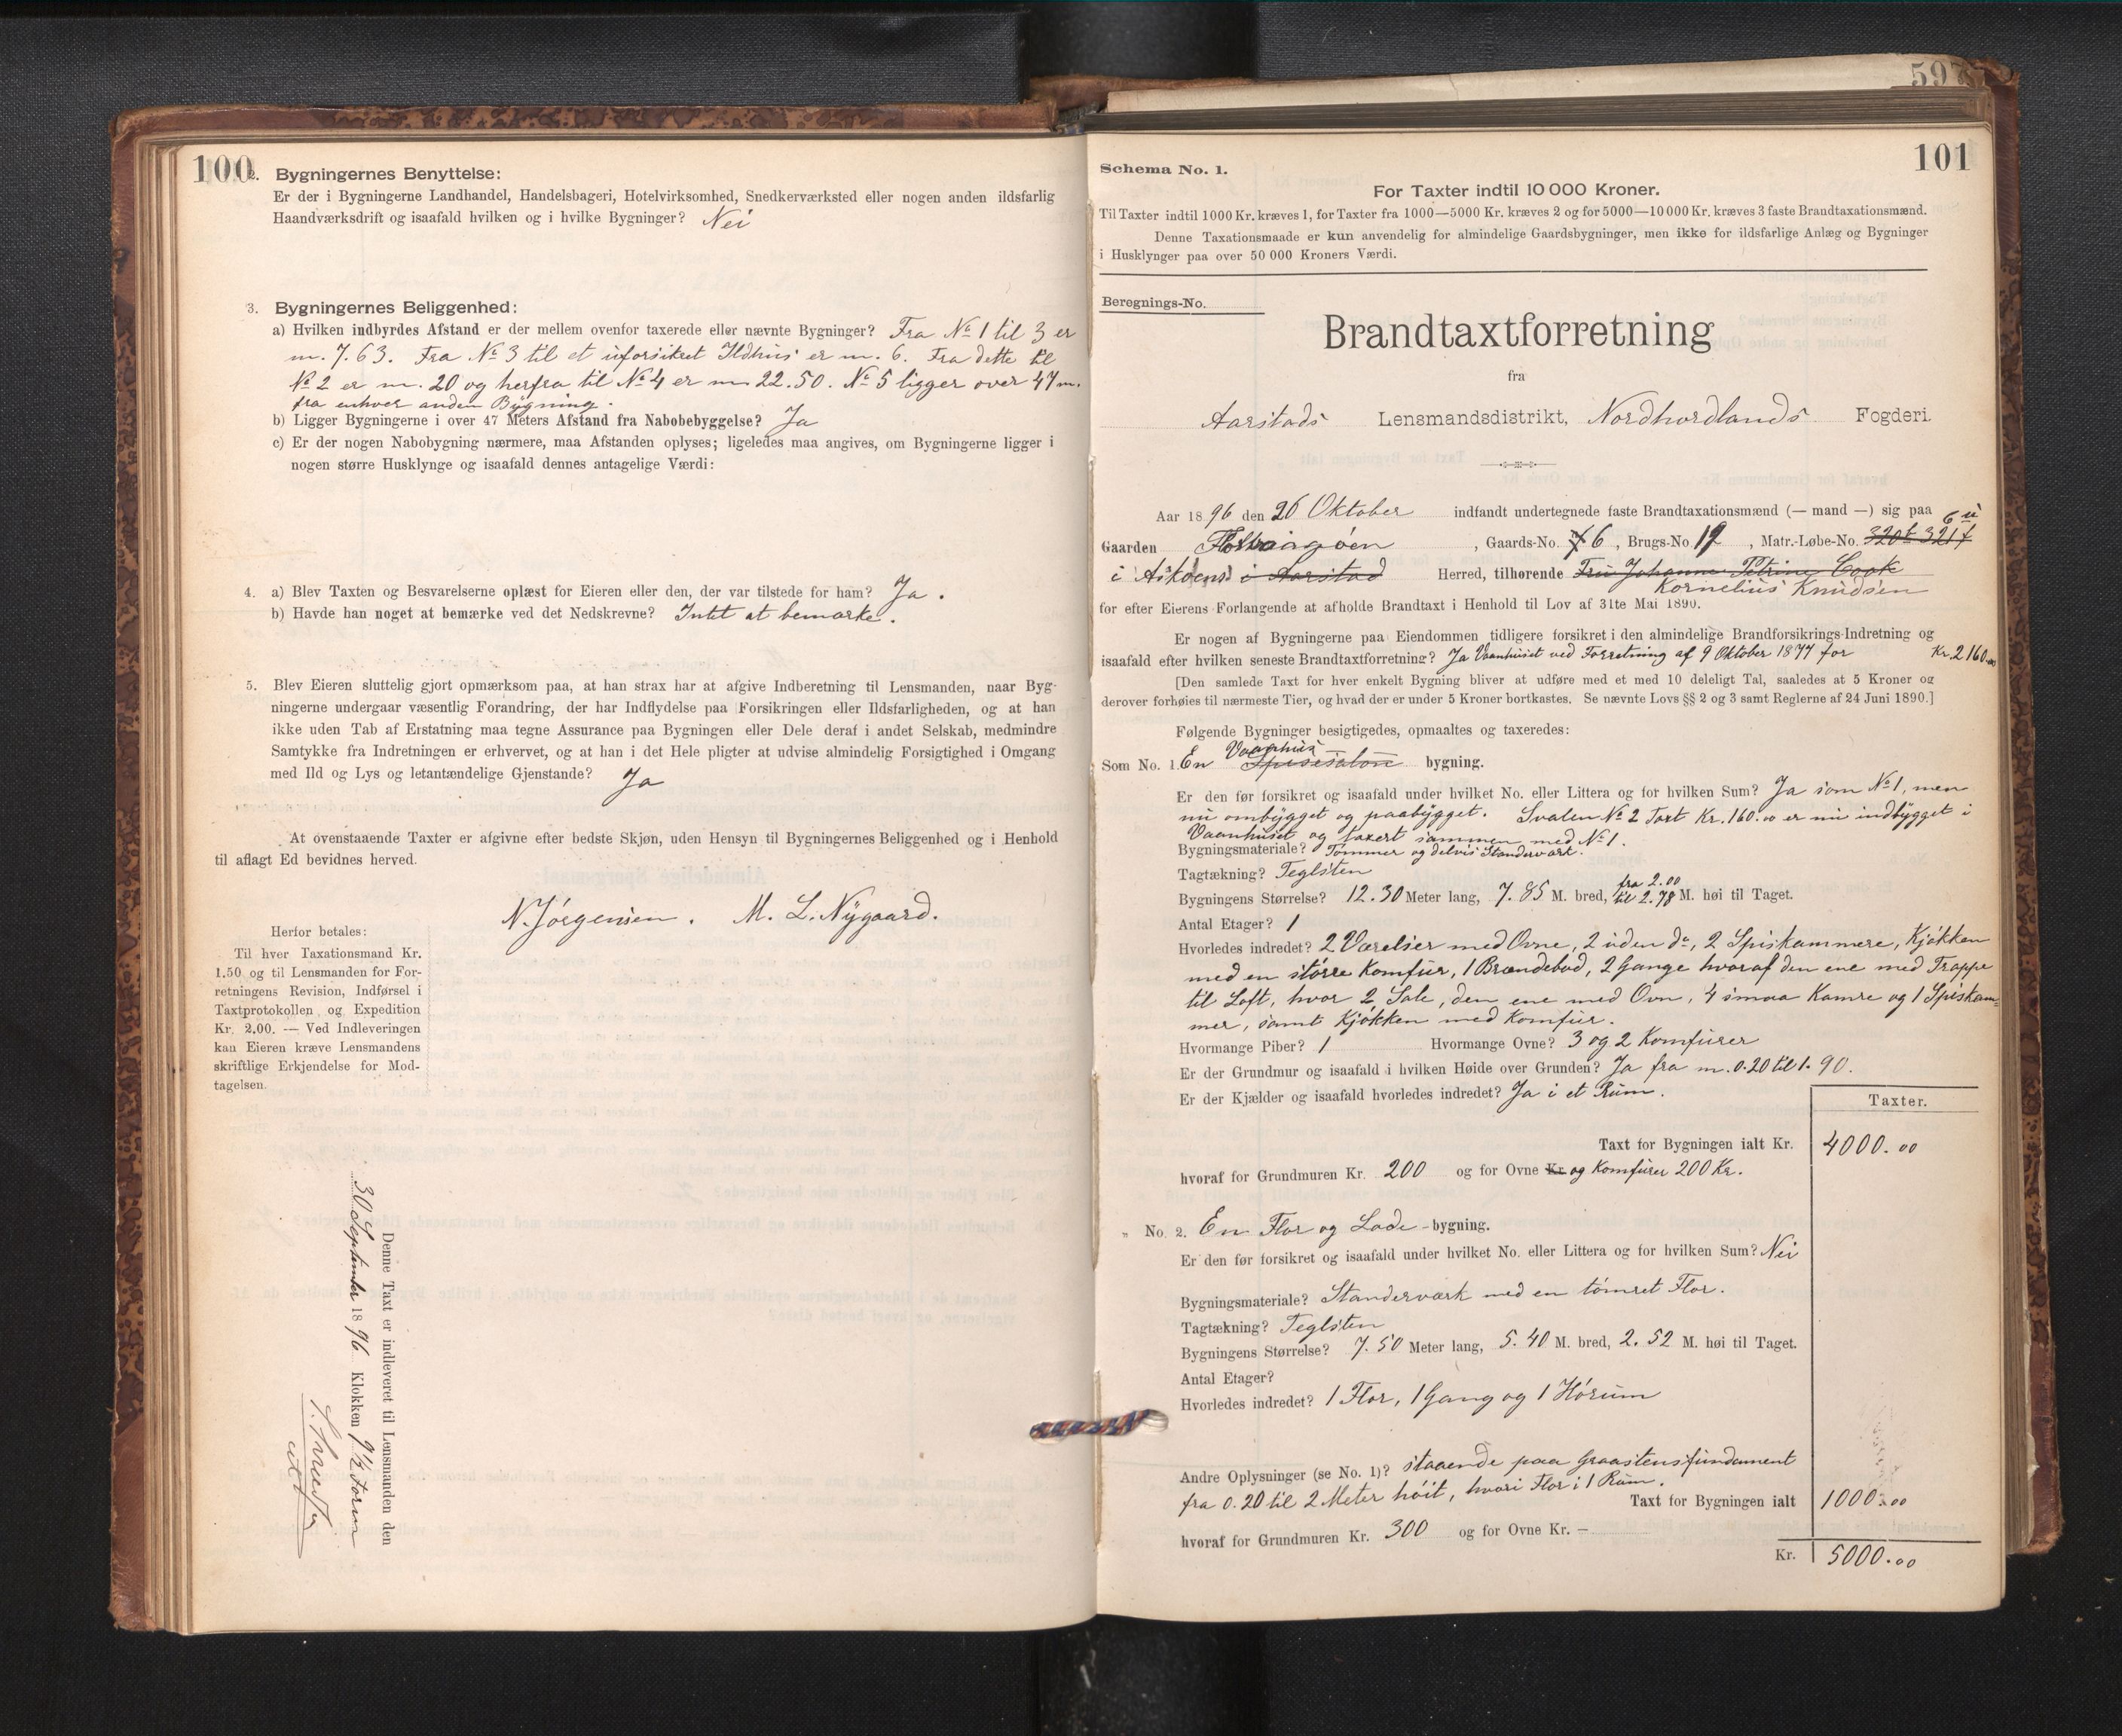 100
2. Bygningernes Benyttelse:
Er der i Bygningerne Landhandel, Handelsbageri, Hotelvirksomhed, Snedkerværksted eller nogen anden ildsfarlig
Haandværksdrift og isaafald hvilken og i hvilke Bygninger? Nei
3. Bygningernes Beliggenhed:
a) Hvilken indbyrdes Afstand er der mellem ovenfor taxerede eller nævnte Bygninger? Fra No 1 til 3 er
m. 7.63. Fra No 3 til et uforsikret Ildhus er m. 6. Fra dette til
No 2 er m. 20 og herfra til No 4 er m 22.50. No 5 ligger over 47 m.
fra enhver anden Bygning.
b) Ligger Bygningerne i over 47 Meters Afstand fra Nabobebyggelse? Ja
c) Er der nogen Nabobygning nærmere, maa Afstanden oplyses; ligeledes maa angives, om Bygningerne ligger i
nogen større Husklynge og isaafald dennes antagelige Værdi:
4. a) Blev Taxten og Besvarelserne oplæst for Eieren eller den, der var tilstede for ham? Ja.
b) Havde han noget at bemærke ved det Nedskrevne? Intet at bemærke.
5. Blev Eieren sluttelig gjort opmærksom paa, at han strax har at afgive Indberetning til Lensmanden, naar Byg-
ningerne undergaar væsentlig Forandring, der har Indflydelse paa Forsikringen eller Ildsfarligheden, og at han
ikke uden Tab af Erstatning maa tegne Assurance paa Bygningen eller Dele deraf i andet Selskab, medmindre
Samtykke fra Indretningen er erhvervet, og at han i det Hele pligter at udvise almindelig Forsigtighed i Omgang
med Ild og Lys og letantændelige Gjenstande? Ja
At ovenstaaende Taxter er afgivne efter bedste Skjøn, uden Hensyn til Bygningernes Beliggenhed og i Henhold
til aflagt Ed bevidnes herved.
N. Jørgensen. M. L. Nygaard.
Herfor betales:
Til hver Taxationsmand Kr.
1.50 og til Lensmanden for For-
retningens Revision, Indførsel i
Taxtprotokollen og Expedition
Kr. 2.00. — Ved Indleveringen
kan Eieren kræve Lensmandens
skriftlige Erkjendelse for Mod-
tagelsen.
Denne Taxt er indleveret til Lensmanden den
30 September 1896 Klokken 9 1/2 Form
597
101
Schema No. 1.
For Taxter indtil 10 000 Kroner.
Til Taxter indtil 1000 Kr. kræves 1, for Taxter fra 1000—5000 Kr. kræves 2 og for 5000—10 000 Kr. kræves 3 faste Brandtaxationsmænd.
Denne Taxationsmaade er kun anvendelig for almindelige Gaardsbygninger, men ikke for ildsfarlige Anlæg og Bygninger
i Husklynger paa over 50 000 Kroners Værdi.
Beregnings-No.
Brandtaxtforretning
fra
Aarstads Lensmandsdistrikt, Nordhordlands Fogderi.
Aar 1896 den 26 Oktober indfandt undertegnede faste Brandtaxationsmænd (— mand —) sig paa
Gaarden Florvaagøen, Gaards-No. 7 6, Brugs-No. 19, Matr.-Løbe-No. 320 321 f
i Askøens i Aarstad Herred, tilhørende Fru Johanne Petrine Cook
Kornelius Knudsen
for efter Eierens Forlangende at afholde Brandtaxt i Henhold til Lov af 31te Mai 1890.
Er nogen af Bygningerne paa Eiendommen tidligere forsikret i den almindelige Brandforsikrings-Indretning og
isaafald efter hvilken seneste Brandtaxtforretning? Ja Vaanhuset ved Forretning af 9 Oktober 1877 for Kr. 2160.00
[Den samlede Taxt for hver enkelt Bygning bliver at udføre med et med 10 deleligt Tal, saaledes at 5 Kroner og
derover forhøies til nærmeste Tier, og hvad der er under 5 Kroner bortkastes. Se nævnte Lovs §§ 2 og 3 samt Reglerne af 24 Juni 1890.]
Følgende Bygninger besigtigedes, opmaaltes og taxeredes:
Vaanhus
Som No. 1. En Spisesalon bygning.
Er den før forsikret og isaafald under hvilket No. eller Littera og for hvilken Sum? Ja som No 1, men
nu ombygget og paabygget. Svalen No 2 Taxt Kr. 160.00 er nu indbygget i
Vaanhuset og taxert sammen med No 1.
Bygningsmateriale? Tømmer og delvis Standerværk.
Tagtækning? Teglsten
Bygningens Størrelse? 12.30 Meter lang, 7.85 M. bred, fra 2.00 til 2.78 M. høi til Taget.
Antal Etager? 1
Hvorledes indredet? 2 Værelser med Ovne, 2 uden do, 2 Spiskammere, Kjøkken
med en større Komfur, 1 Brændebod, 2 Gange hvoraf den ene med Trappe
til Loft, hvor 2 Sale, den ene med Ovn, 4 smaa Kamre og 1 Spiskam-
mer, samt Kjøkken med Komfur.
Hvormange Piber? 1 Hvormange Ovne? 3 og 2 Komfurer
Er der Grundmur og isaafald i hvilken Høide over Grunden? Ja fra m. 0.20 til 1.90.
Er der Kjælder og isaafald hvorledes indredet? Ja i et Rum.
Taxter.
Taxt for Bygningen ialt Kr. 4000.00
hvoraf for Grundmuren Kr. 200 og for Ovne Kr. og Komfurer 200 Kr.
„ No. 2. En Flor og Lade-bygning.
Er den før forsikret og isaafald under hvilket No. eller Littera og for hvilken Sum? Nei
Bygningsmateriale? Standerværk med en tømret Flor.
Tagtækning? Teglsten
Bygningens Størrelse? 7.50 Meter lang, 5.40 M. bred, 2.52 M. høi til Taget.
Antal Etager?
Hvorledes indredet? 1 Flor, 1 Gang og 1 Hørum
Andre Oplysninger (se No. 1)? staaende paa Graastensfundament
fra 0.20 til 2 Meter høit, hvori Flor i 1 Rum.
Taxt for Bygningen ialt 1000.00
hvoraf for Grundmuren Kr. 300 og for Ovne Kr. —
Kr. 5000.00